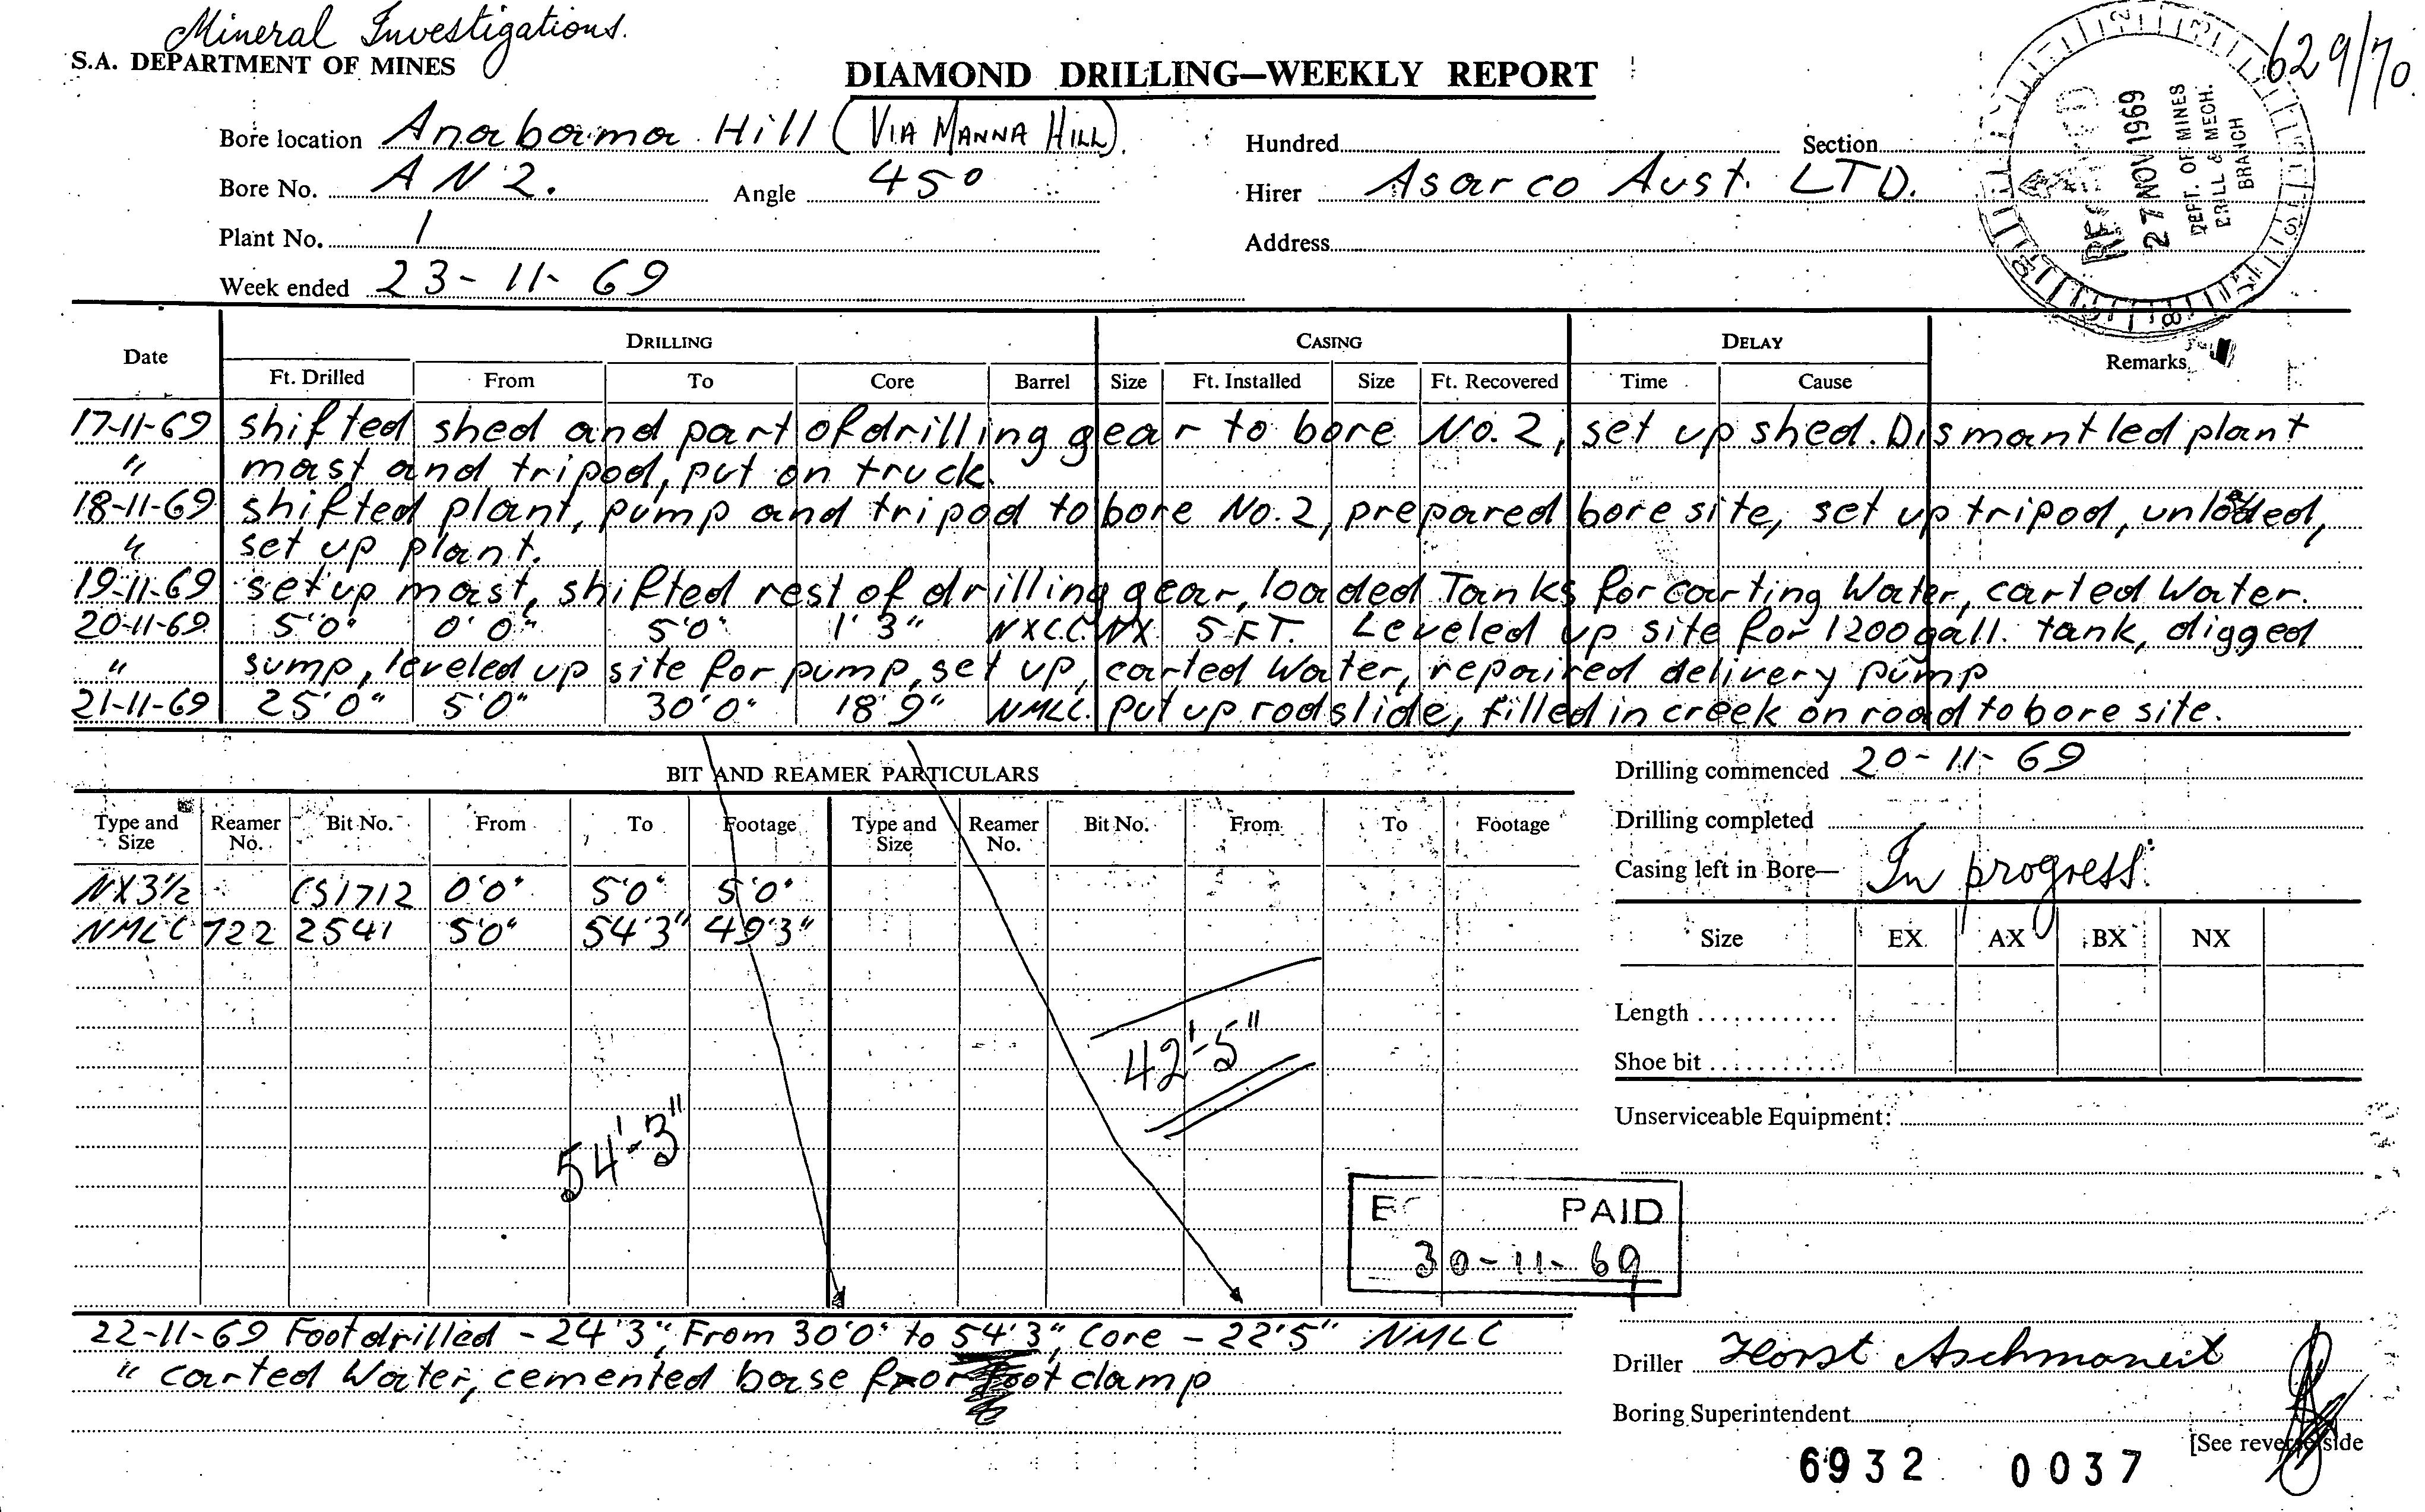 Mineral Investigations.
S.A. DEPARTMENT OF MINES
DIAMOND DRILLING—WEEKLY REPORT
629/70
27 NOV 1969
DEPT. OF MINES
DRILL & MECH.
BRANCH
Bore location Anabama Hill (VIA MANNA HILL).
Hundred Section
Bore No. AN2. Angle 45°
Hirer Asarco Aust. LTD.
Plant No. 1
Address
Week ended 23-11-69
Date DRILLING CASING DELAY Remarks
Ft. Drilled From To Core Barrel Size Ft. Installed Size Ft. Recovered Time Cause
17-11-69 shifted shed and part of drilling gear to bore No. 2, set up shed. Dismantled plant
" mast and tripod, put on truck.
18-11-69 shifted plant, pump and tripod to bore No. 2, prepared bore site, set up tripod, unloaded,
" set up plant.
19-11-69 set up mast, shifted rest of drilling gear, loaded Tanks for carting Water, carted Water.
20-11-69 5'0" 0'0" 5'0" 1'3" NXCC. NX 5 FT. Leveled up site for 1200 gall. tank, digged
" sump, leveled up site for pump, set up, carted Water, repaired delivery pump
21-11-69 25'0" 5'0" 30'0" 18'9" NMLC. put up rod slide, filled in creek on road to bore site.
BIT AND REAMER PARTICULARS
Drilling commenced 20-11-69
Type and Size Reamer No. Bit No. From To Footage Type and Size Reamer No. Bit No. From To Footage
Drilling completed
Casing left in Bore— In progress.
NX3½ CS1712 0'0" 5'0" 5'0"
NMLC 722 2541 5'0" 54'3" 49'3"
Size EX. AX BX NX
Length
42'-5"
Shoe bit
54'-3"
Unserviceable Equipment:
PAID
30-11-69
22-11-69 Foot drilled - 24'3", From 30'0" to 54'3", Core - 22'5" NMLC
" carted Water, cemented base for foot clamp
Driller Horst Aschmoneit
Boring Superintendent
[See reverse side
6932 0037